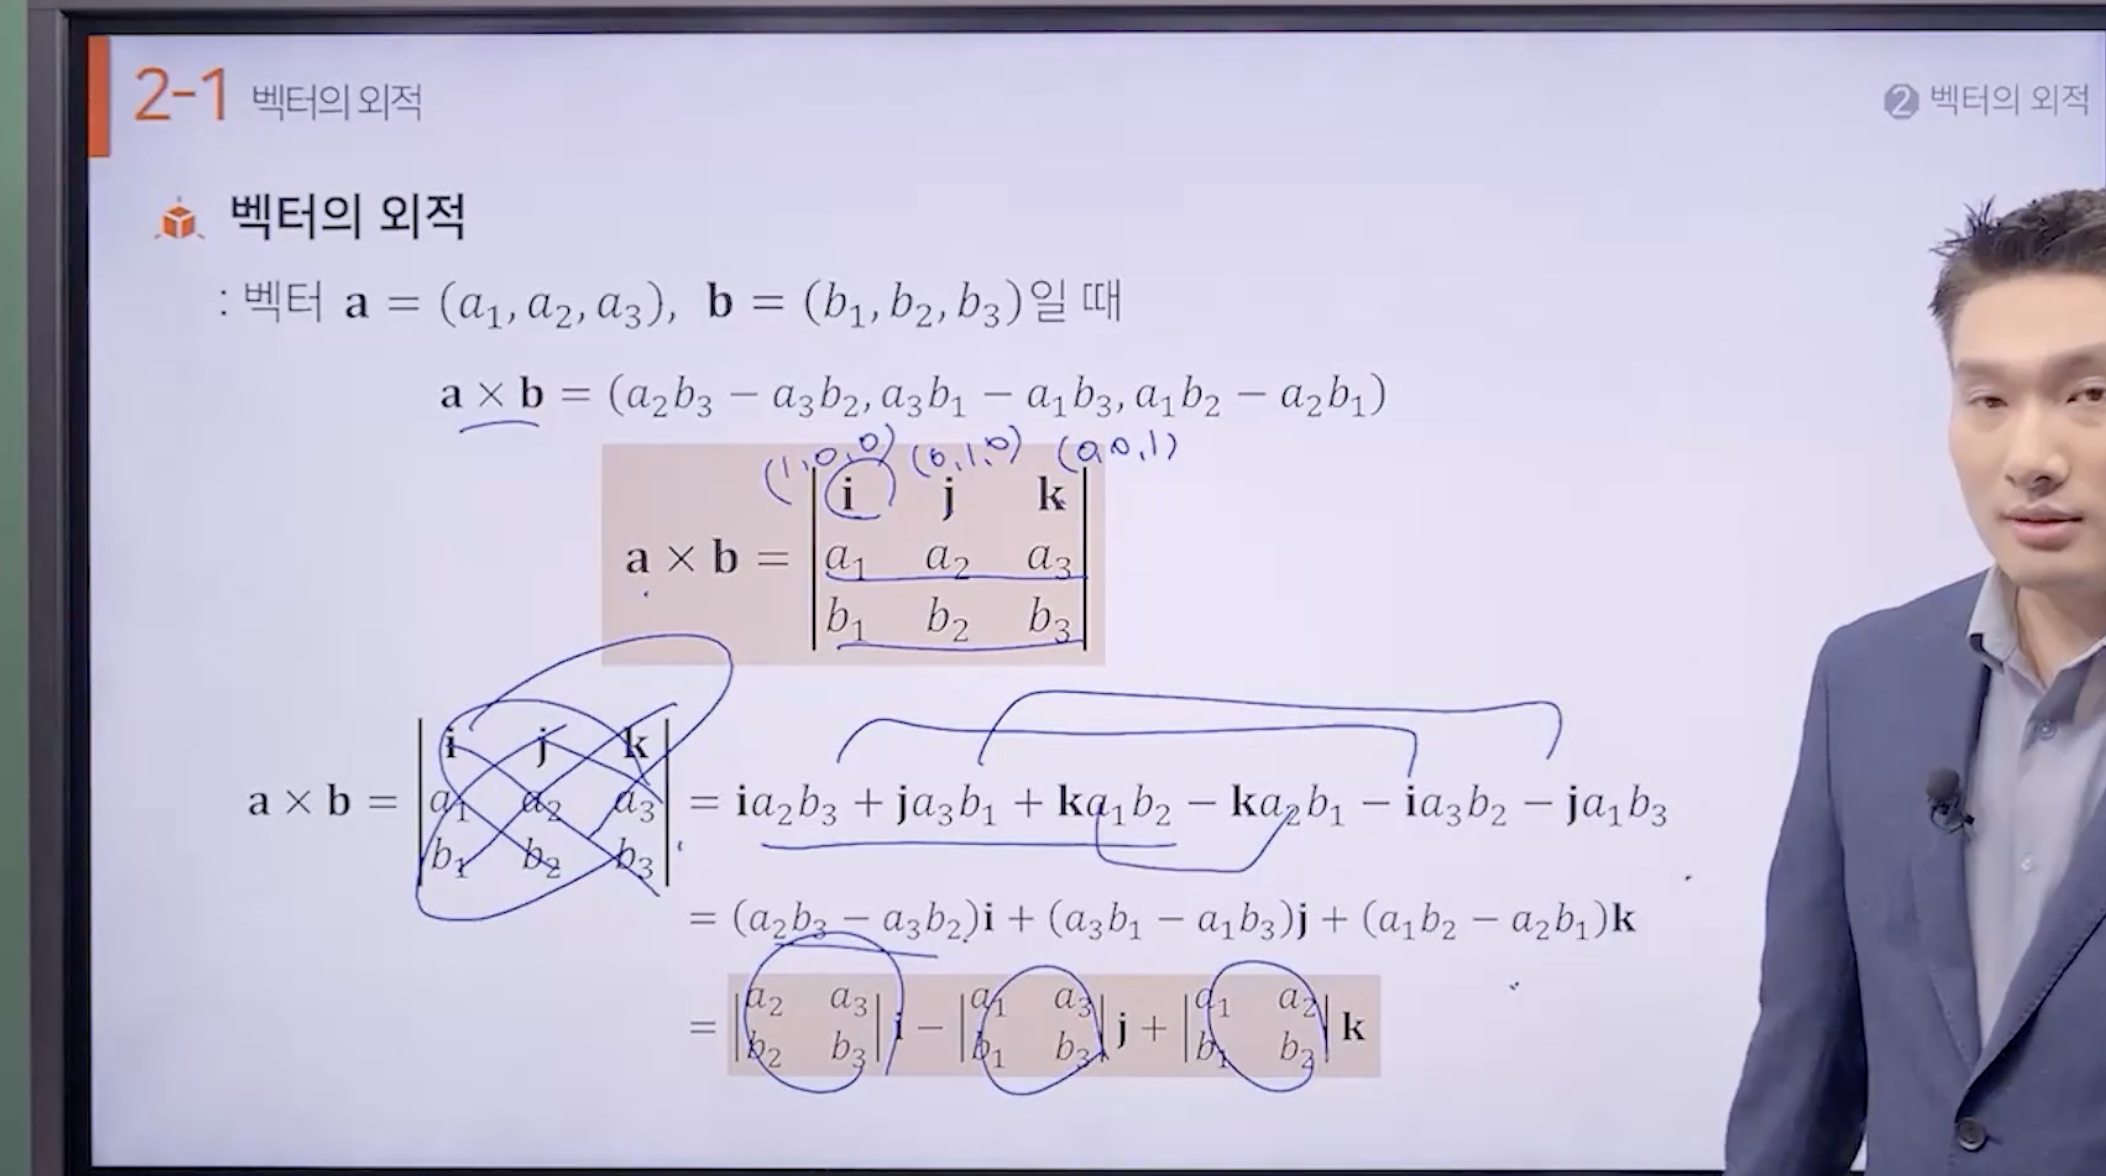 2-1 벡터의 외적
② 벡터의 외적
벡터의 외적
: 벡터 a = (a₁, a₂, a₃), b = (b₁, b₂, b₃)일 때
a × b = (a₂b₃ − a₃b₂, a₃b₁ − a₁b₃, a₁b₂ − a₂b₁)
(1,0,0) (0,1,0) (0,0,1)
i j k
a × b = a₁ a₂ a₃
b₁ b₂ b₃
i j k
a × b = a₁ a₂ a₃ = ia₂b₃ + ja₃b₁ + ka₁b₂ − ka₂b₁ − ia₃b₂ − ja₁b₃
b₁ b₂ b₃
= (a₂b₃ − a₃b₂)i + (a₃b₁ − a₁b₃)j + (a₁b₂ − a₂b₁)k
= |a₂ a₃| i − |a₁ a₃| j + |a₁ a₂| k
|b₂ b₃| |b₁ b₃| |b₁ b₂|